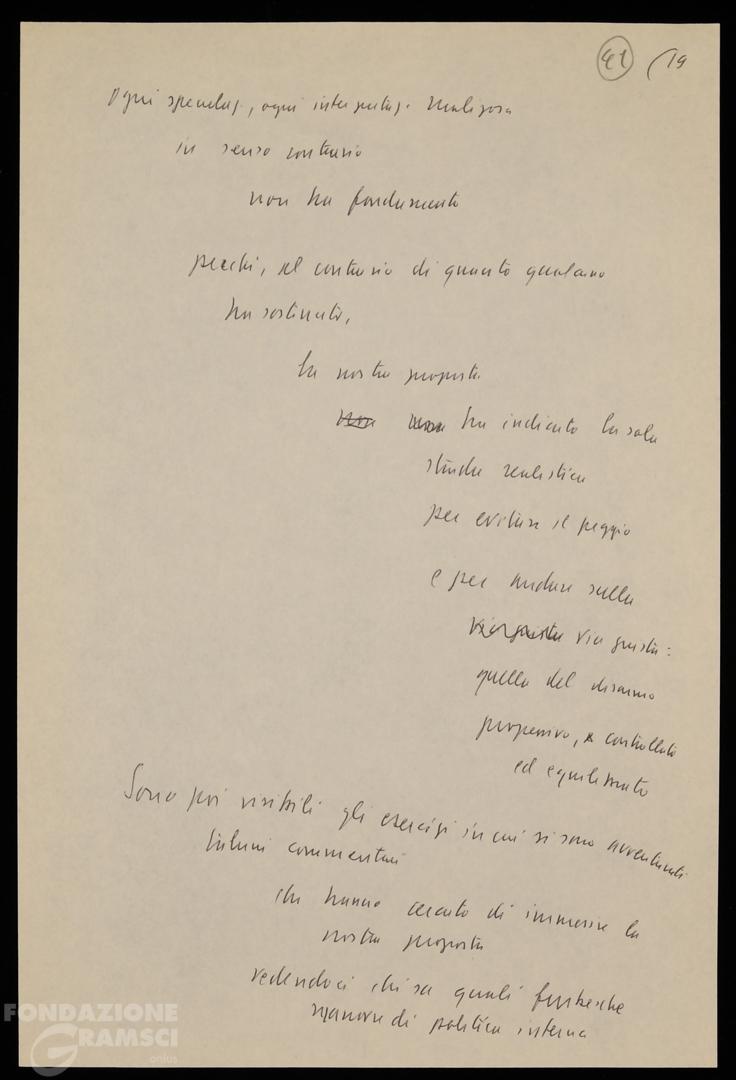 41 / 19
Ogni speculaz., ogni interpretaz. malignosa
in senso contrario
non ha fondamento
perchè, al contrario di quanto qualcuno
ha sostenuto,
la nostra proposta
non non ha indicato la sola
strada realistica
per evitare il peggio
e per andare sulla
via giusta via giusta:
quella del disarmo
progressivo, e controllato
ed equilibrato
Sono poi visibili gli esercizi in cui si sono avventurati
taluni commentari
che hanno cercato di immeserire la
nostra proposta
vedendoci chi sa quali furbesche
manovre di politica interna
FONDAZIONE
GRAMSCI
onlus